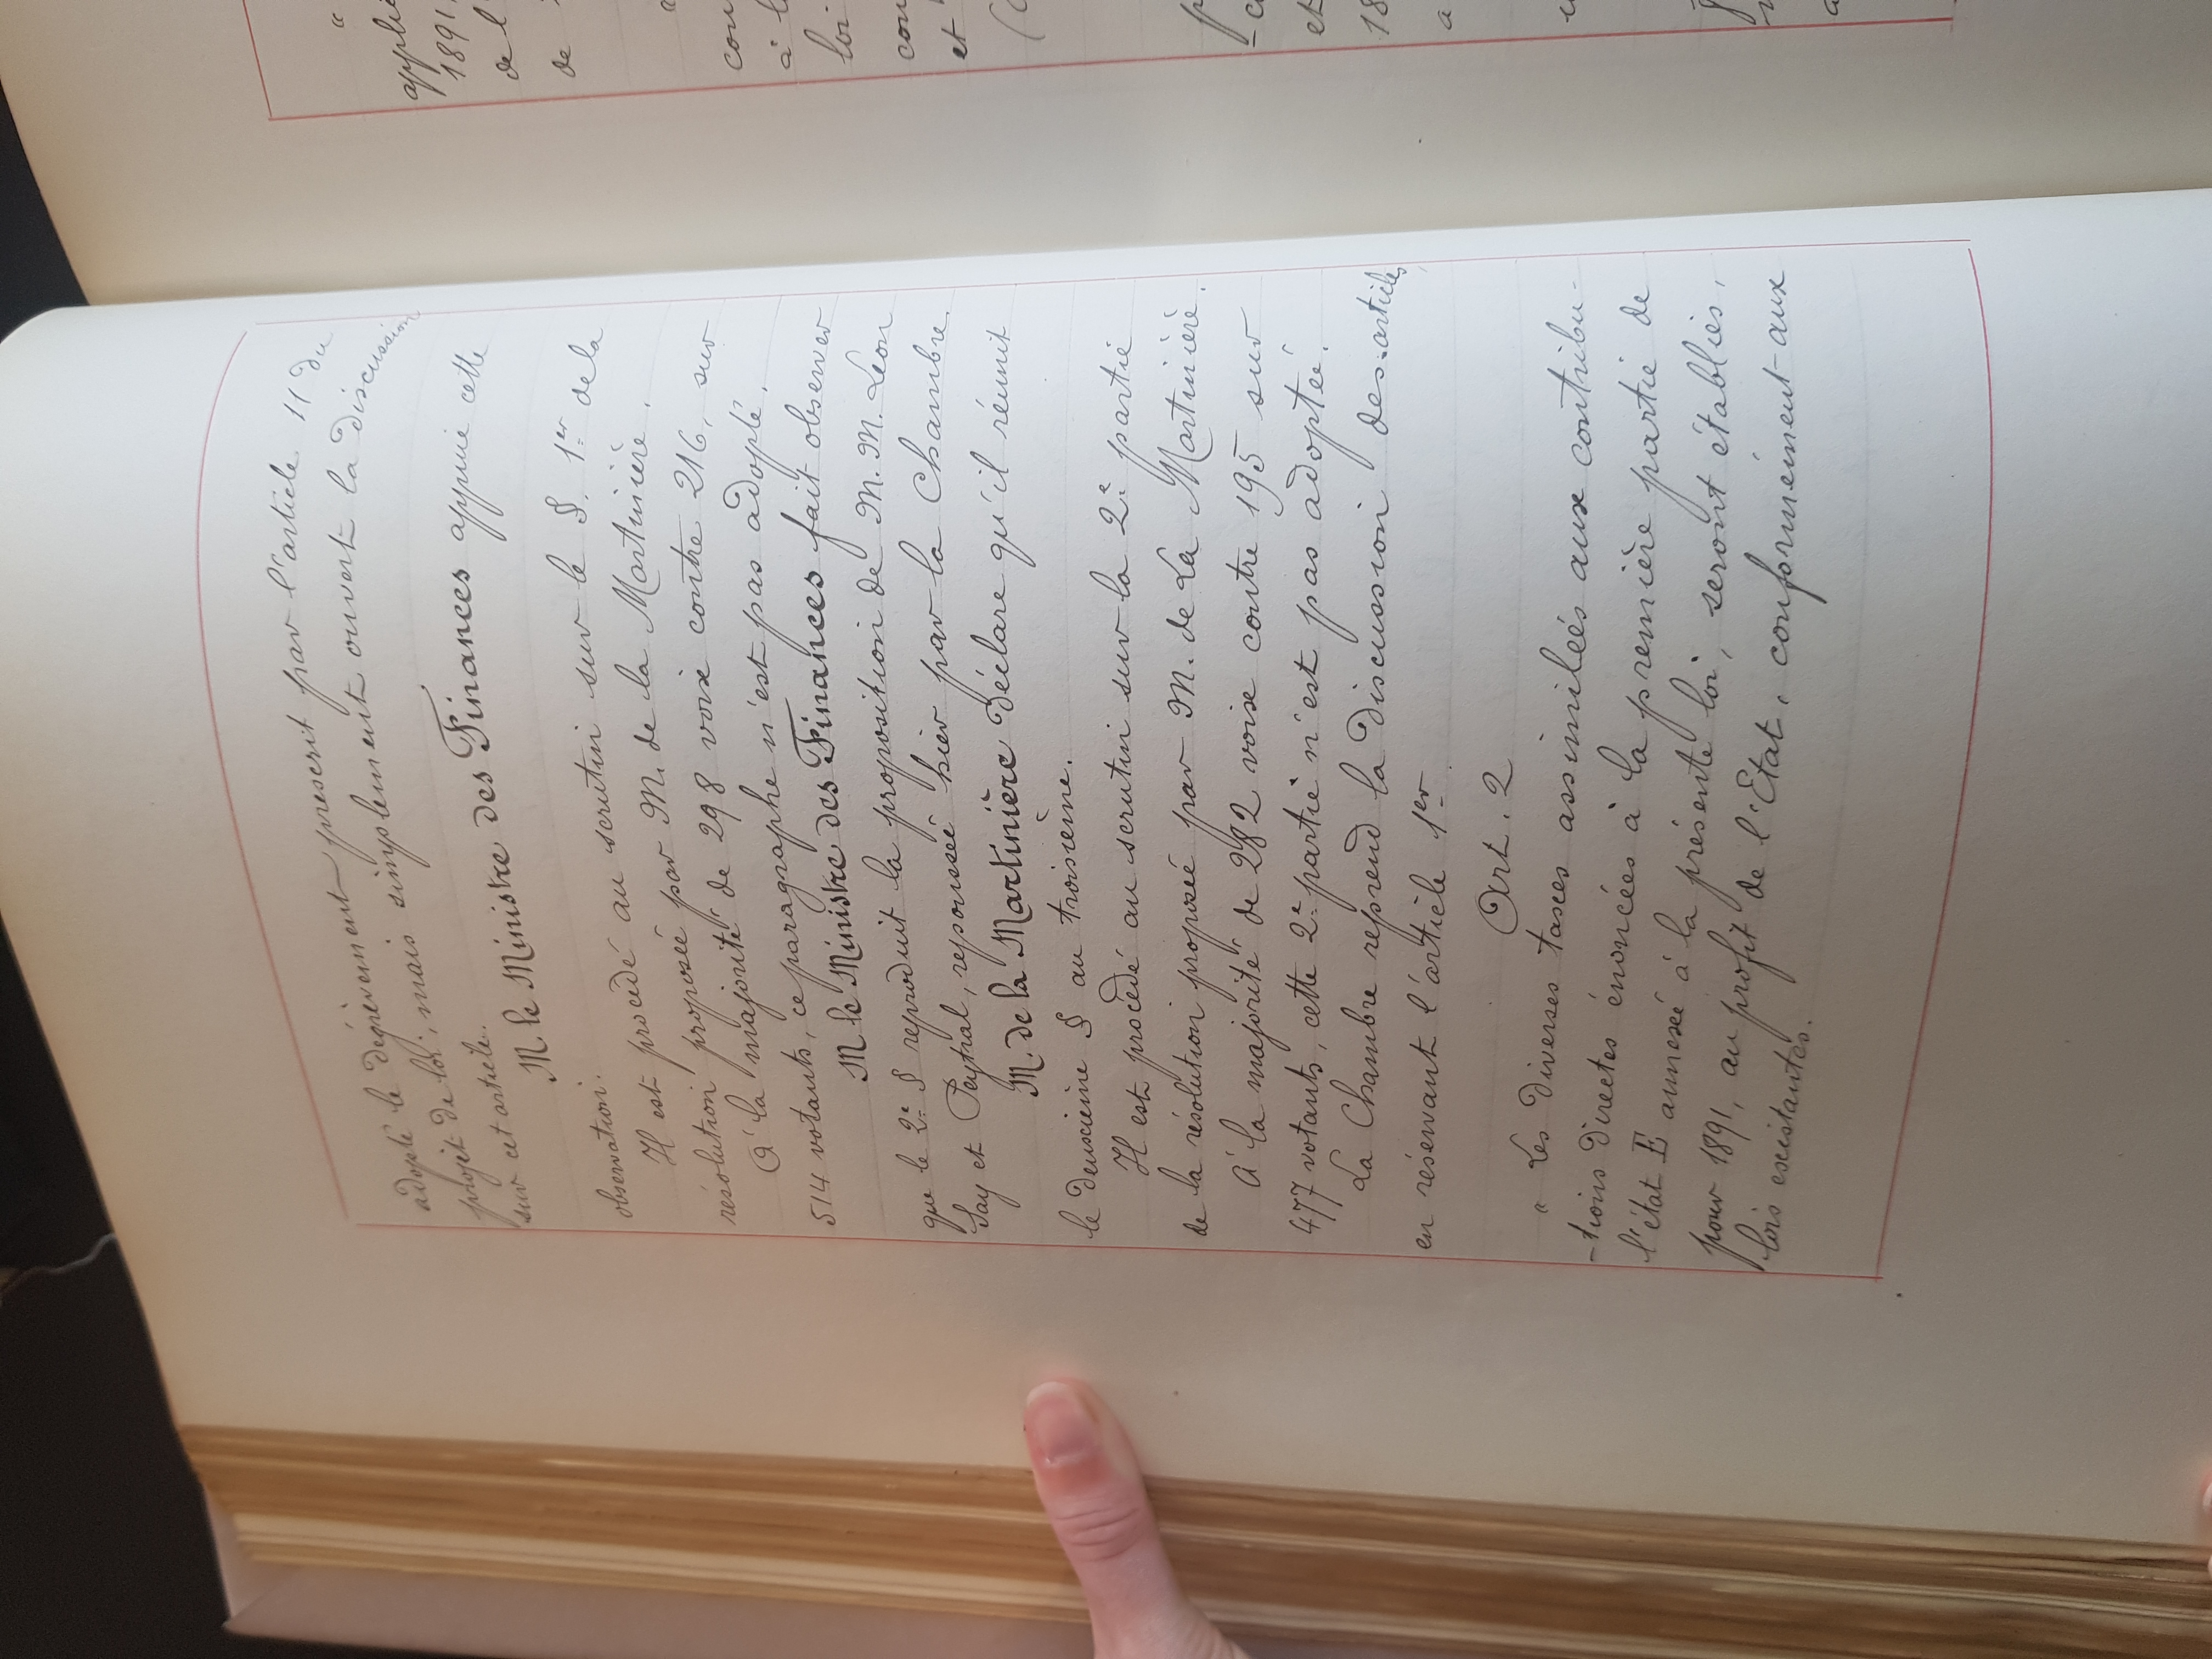 adopté le dégrèvement prescrit par l'article 11 du
projet de loi, mais simplement ouvert la discussion
sur cet article.
M le Ministre des Finances appuie cette
observation.
Il est procédé au scrutin sur le §. 1er de la
résolution proposée par M. de la Martinière.
A la majorité de 298 voix contre 216, sur
514 votants, ce paragraphe n'est pas adopté.
M le Ministre des Finances fait observer
que le 2e § reproduit la proposition de M. M. Léon
Say et Peytral, repoussée hier par la Chambre.
M. de la Martinière déclare qu'il réunit
le deuxième § au troisième.
Il est procédé au scrutin sur la 2e partie
de la résolution proposée par M. de La Martinière.
A la majorité de 282 voix contre 195 sur
477 votants, cette 2e partie n'est pas adoptée.
La Chambre reprend la discussion des articles
en réservant l'article 1er.
Art. 2
" Les diverses taxes assimilées aux contribu-
-tions directes énoncées à la première partie de
l'état E annexé à la présente loi, seront établies,
pour 1891, au profit de l'Etat, conformément aux
lois existantes.
"
appli
1891,
de l'
de
cou
à l
loi
cou
et
et
18
a